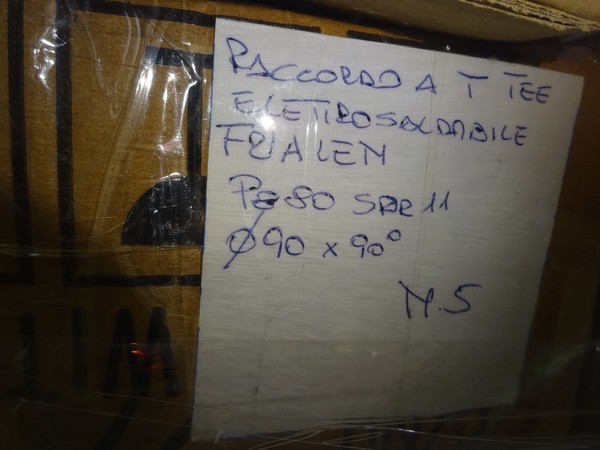 RACCORDO A T TEE
ELETTROSALDABILE
FRIALEN
PE80 SDR 11
Ø90 x 90°
N.5